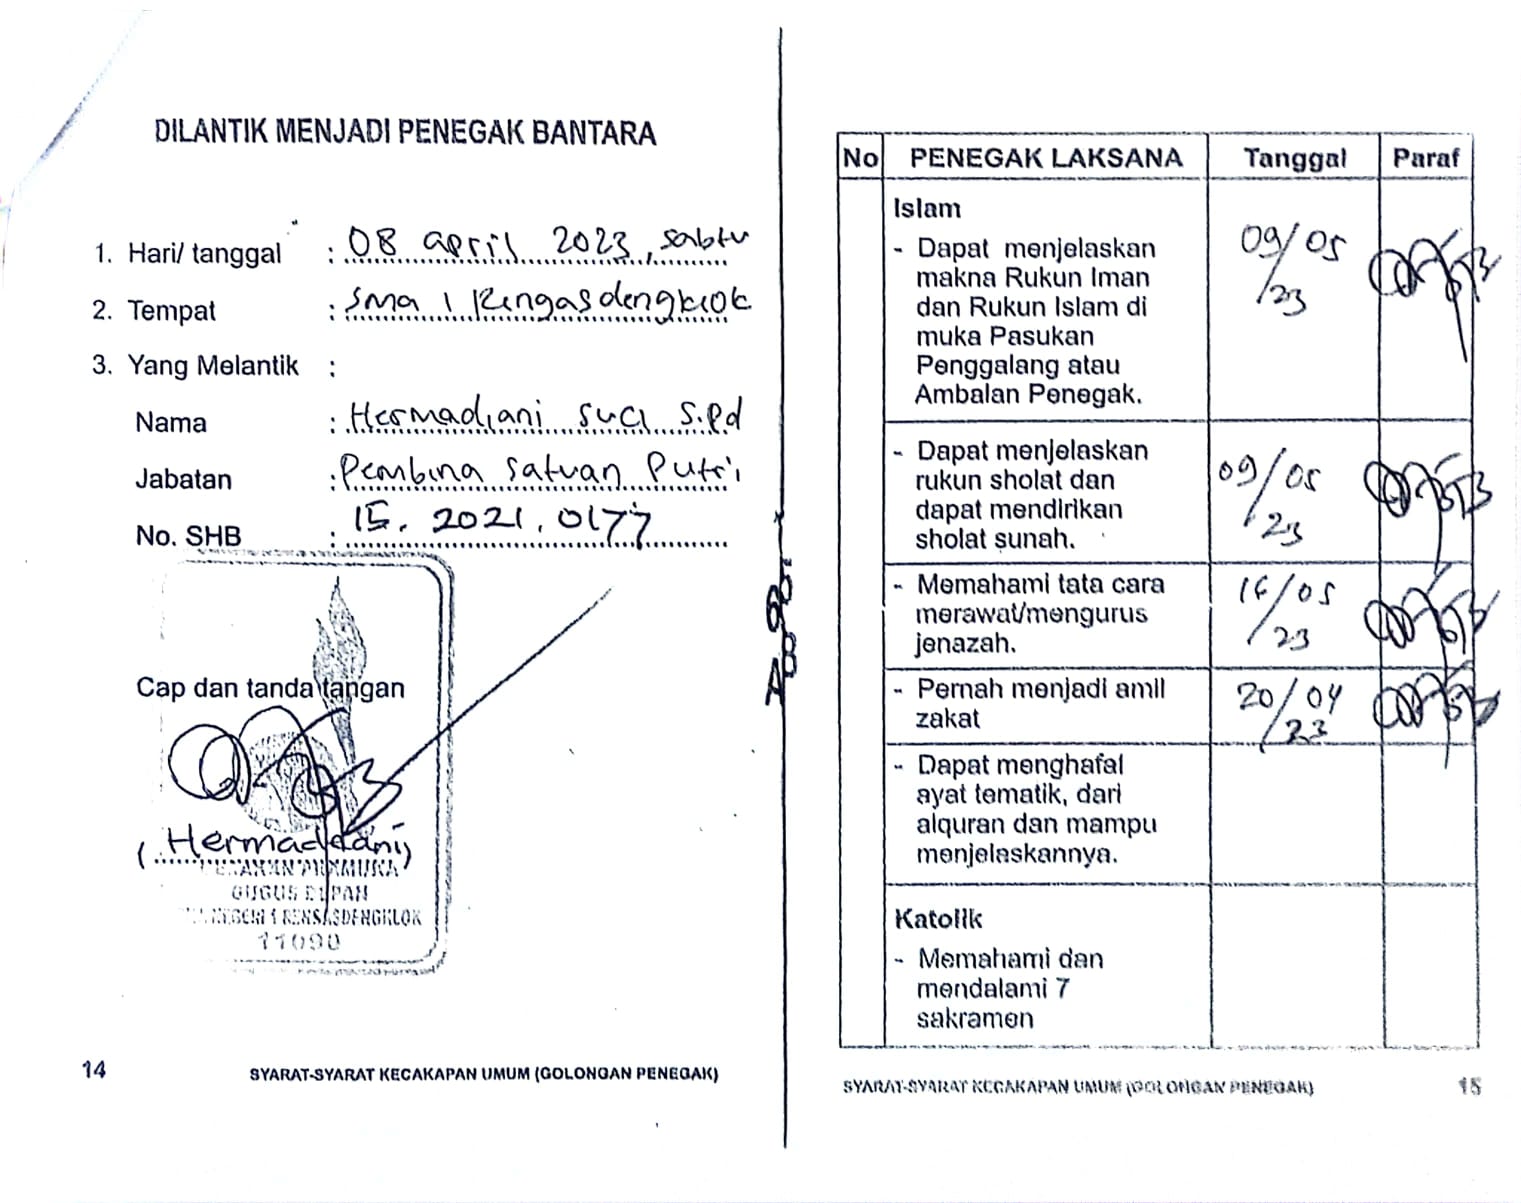 DILANTIK MENJADI PENEGAK BANTARA
1. Hari/ tanggal : 08 april 2023, sabtu
2. Tempat : Sma 1 Rengasdengklok
3. Yang Melantik :
Nama : Hermadiani suci S.Pd
Jabatan : Pembina Satuan Putri
No. SHB : 15. 2021. 0177
Cap dan tanda tangan
(Hermadiani)
GUGUS DEPAN
NEGERI 1 RENGASDENGKLOK
11090
14
SYARAT-SYARAT KECAKAPAN UMUM (GOLONGAN PENEGAK)
No PENEGAK LAKSANA Tanggal Paraf
Islam
- Dapat menjelaskan 09/05
makna Rukun Iman /23
dan Rukun Islam di
muka Pasukan
Penggalang atau
Ambalan Penegak.
- Dapat menjelaskan
rukun sholat dan 09/05
dapat mendirikan /23
sholat sunah.
- Memahami tata cara 16/05
merawat/mengurus /23
jenazah.
- Pernah menjadi amil 20/04
zakat /23
- Dapat menghafal
ayat tematik, dari
alquran dan mampu
menjelaskannya.
Katolik
- Memahami dan
mendalami 7
sakramen
SYARAT-SYARAT KECAKAPAN UMUM (GOLONGAN PENEGAK)
15